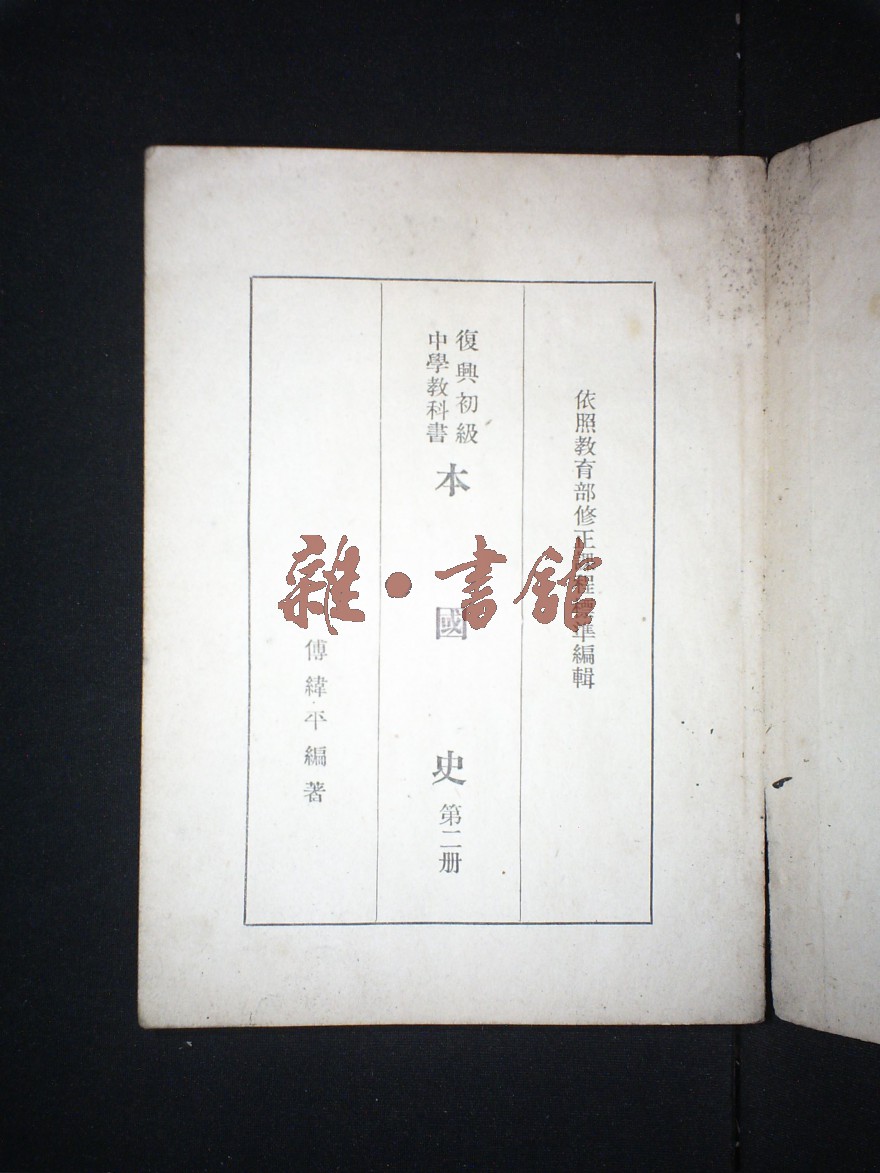 依照教育部修正課程標準編輯
復興初級
中學教科書
本國史 第二册
傅緯平編著
雜·書館